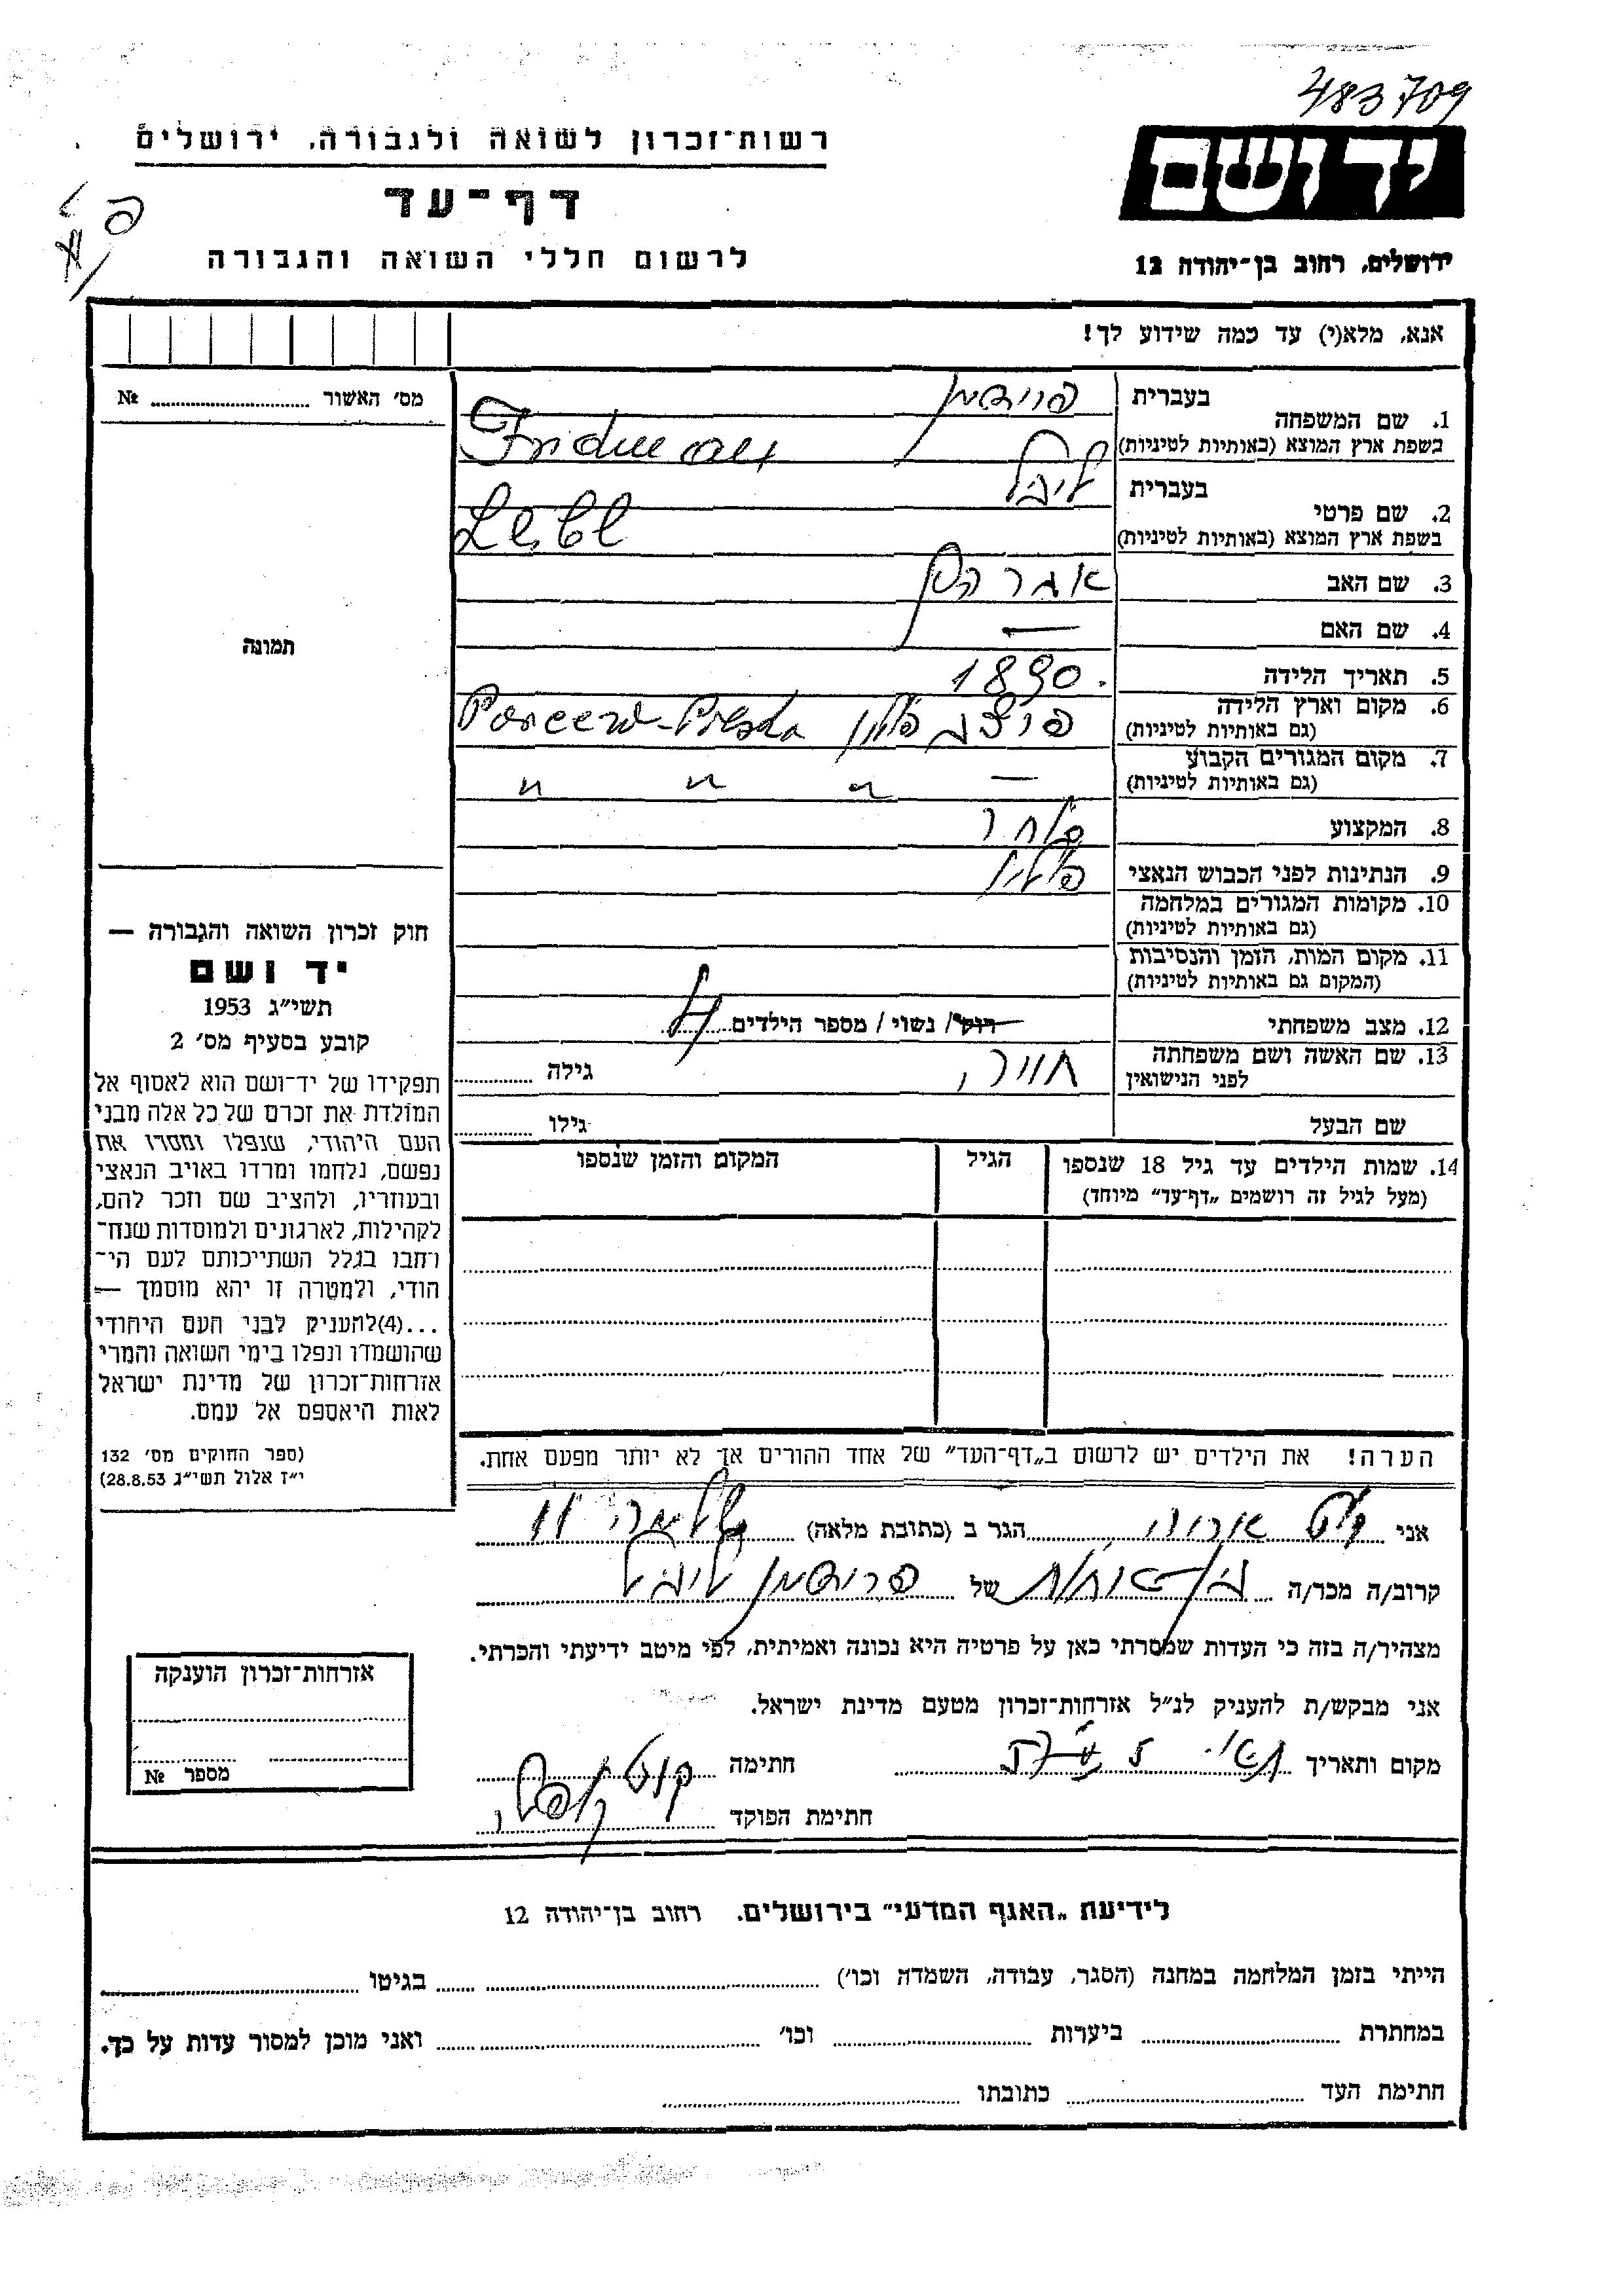 483709
רשות־זכרון לשואה ולגבורה, ירושלים
יד ושם
דף־עד
לרשום חללי השואה והגבורה
ירושלים, רחוב בן־יהודה 12
אנא, מלא(י) עד כמה שידוע לך!
מס׳ האשור № 
תמונה
חוק זכרון השואה והגבורה —
יד ושם
תשי״ג 1953
קובע בסעיף מס׳ 2
תפקידו של יד־ושם הוא לאסוף אל
המולדת את זכרם של כל אלה מבני
העם היהודי, שנפלו ומסרו את
נפשם, נלחמו ומרדו באויב הנאצי
ובעוזריו, ולהציב שם וזכר להם,
לקהילות, לארגונים ולמוסדות שנח־
רחבו בגלל השתייכותם לעם הי־
הודי, ולמטרה זו יהא מוסמך —
...(4)להעניק לבני העם היהודי
שהושמדו ונפלו בימי השואה והמרי
אזרחות־זכרון של מדינת ישראל
לאות היאספם אל עמם.
(ספר החוקים מס׳ 132
י״ז אלול תשי״ג 28.8.53)
1. שם המשפחה
בעברית פרידמן
בשפת ארץ המוצא (באותיות לטיניות) Fridman
2. שם פרטי
בעברית ליבל
בשפת ארץ המוצא (באותיות לטיניות) Leibl
3. שם האב אברהם
4. שם האם —
5. תאריך הלידה 1890.
6. מקום וארץ הלידה
(גם באותיות לטיניות) פרצב פולין Parcew-Polska
7. מקום המגורים הקבוע
(גם באותיות לטיניות) — " " "
8. המקצוע סוחר
9. הנתינות לפני הכבוש הנאצי פולין
10. מקומות המגורים במלחמה
(גם באותיות לטיניות)
11. מקום המות, הזמן והנסיבות
(המקום גם באותיות לטיניות)
12. מצב משפחתי רוק/ נשוי / מספר הילדים 4
13. שם האשה ושם משפחתה
לפני הנישואין גילה
שם הבעל גילו
14. שמות הילדים עד גיל 18 שנספו
(מעל לגיל זה רושמים „דף־עד״ מיוחד)
הגיל
המקום והזמן שנספו
הערה! את הילדים יש לרשום ב„דף־העד״ של אחד ההורים אך לא יותר מפעם אחת.
אני הגר ב (כתובת מלאה)
קרוב/ה מכר/ה של פרידמן ליבל
מצהיר/ה בזה כי העדות שמסרתי כאן על פרטיה היא נכונה ואמיתית, לפי מיטב ידיעתי והכרתי.
אני מבקש/ת להעניק לנ״ל אזרחות־זכרון מטעם מדינת ישראל.
מקום ותאריך חתימה
חתימת הפוקד
אזרחות־זכרון הוענקה
מספר №
לידיעת „האגף המדעי״ בירושלים. רחוב בן־יהודה 12
הייתי בזמן המלחמה במחנה (הסגר, עבודה, השמדה וכו׳) בגיטו
במחתרת ביערות וכו׳ ואני מוכן למסור עדות על כך.
חתימת העד כתובתו